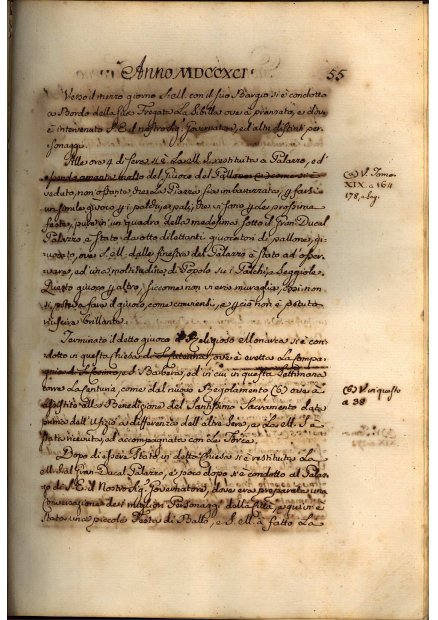 Anno MDCCXCI
55
Verso il mezzo giorno S. M. con il suo Bargio si è condotta
a Bordo della sua Fregata La Sibilla ove à pranzato, e dove
è intervenuto S. E. il nostro Sig. Governatore, ed altri distinti per-
sonaggi.
Alle ore 4 di sera si è La M. S. restituita a Palazzo, ed
essendo amante molto del Giuoco del Pallone (a) come si è
veduto, non ostante che la Piazza sia imbarazzata, per farsi
un simile giuoco per i palchi, e pali, che vi sono per le prossime
feste, pure in un quadro della medesima sotto il Gran Ducal
Palazzo è stato da otto dilettanti giuocatori di pallone, gi-
uocato, ove S. M. dalle finestre del Palazzo è stato ad osser-
vare, ed una moltitudine di Popolo su i Palchi, e Seggiole.
Questo giuoco per altro, siccome non vi era muraglia, non
si poteva fare il giuoco, come conviensi, e perciò non è potuto
riuscire brillante.
Terminato il detto giuoco il Religioso Monarca si è con-
dotto in questa Chiesa di ove è eretta la Compa-
gnia di S. Barbara, ed in cui in questa Settimana
torre La sentuna, come dal nuovo Regolamento (b) ove à
assistito alla Benedizione del Santissimo Sacramento data
prima dell'Ufizio a differenza dell'altre sere, e La M. S. è
stato ricevuto, ed accompagnato con Le Torce.
Dopo di essere stato in detta Chiesa si è restituita La
M. S. al Gran Ducal Palazzo, e poco dopo si è condotto al Palaz-
zo di S. E. il Nostro Sig. Governatore, dove era preparata una
Conversazione dei migliori Personaggi della Città, e quivi è
stato una piccola Festa di Ballo, e S. M. à fatto La
(a) V. Tomo
XIX. a 164
178, e seg.
(b) V. in questo
a 38